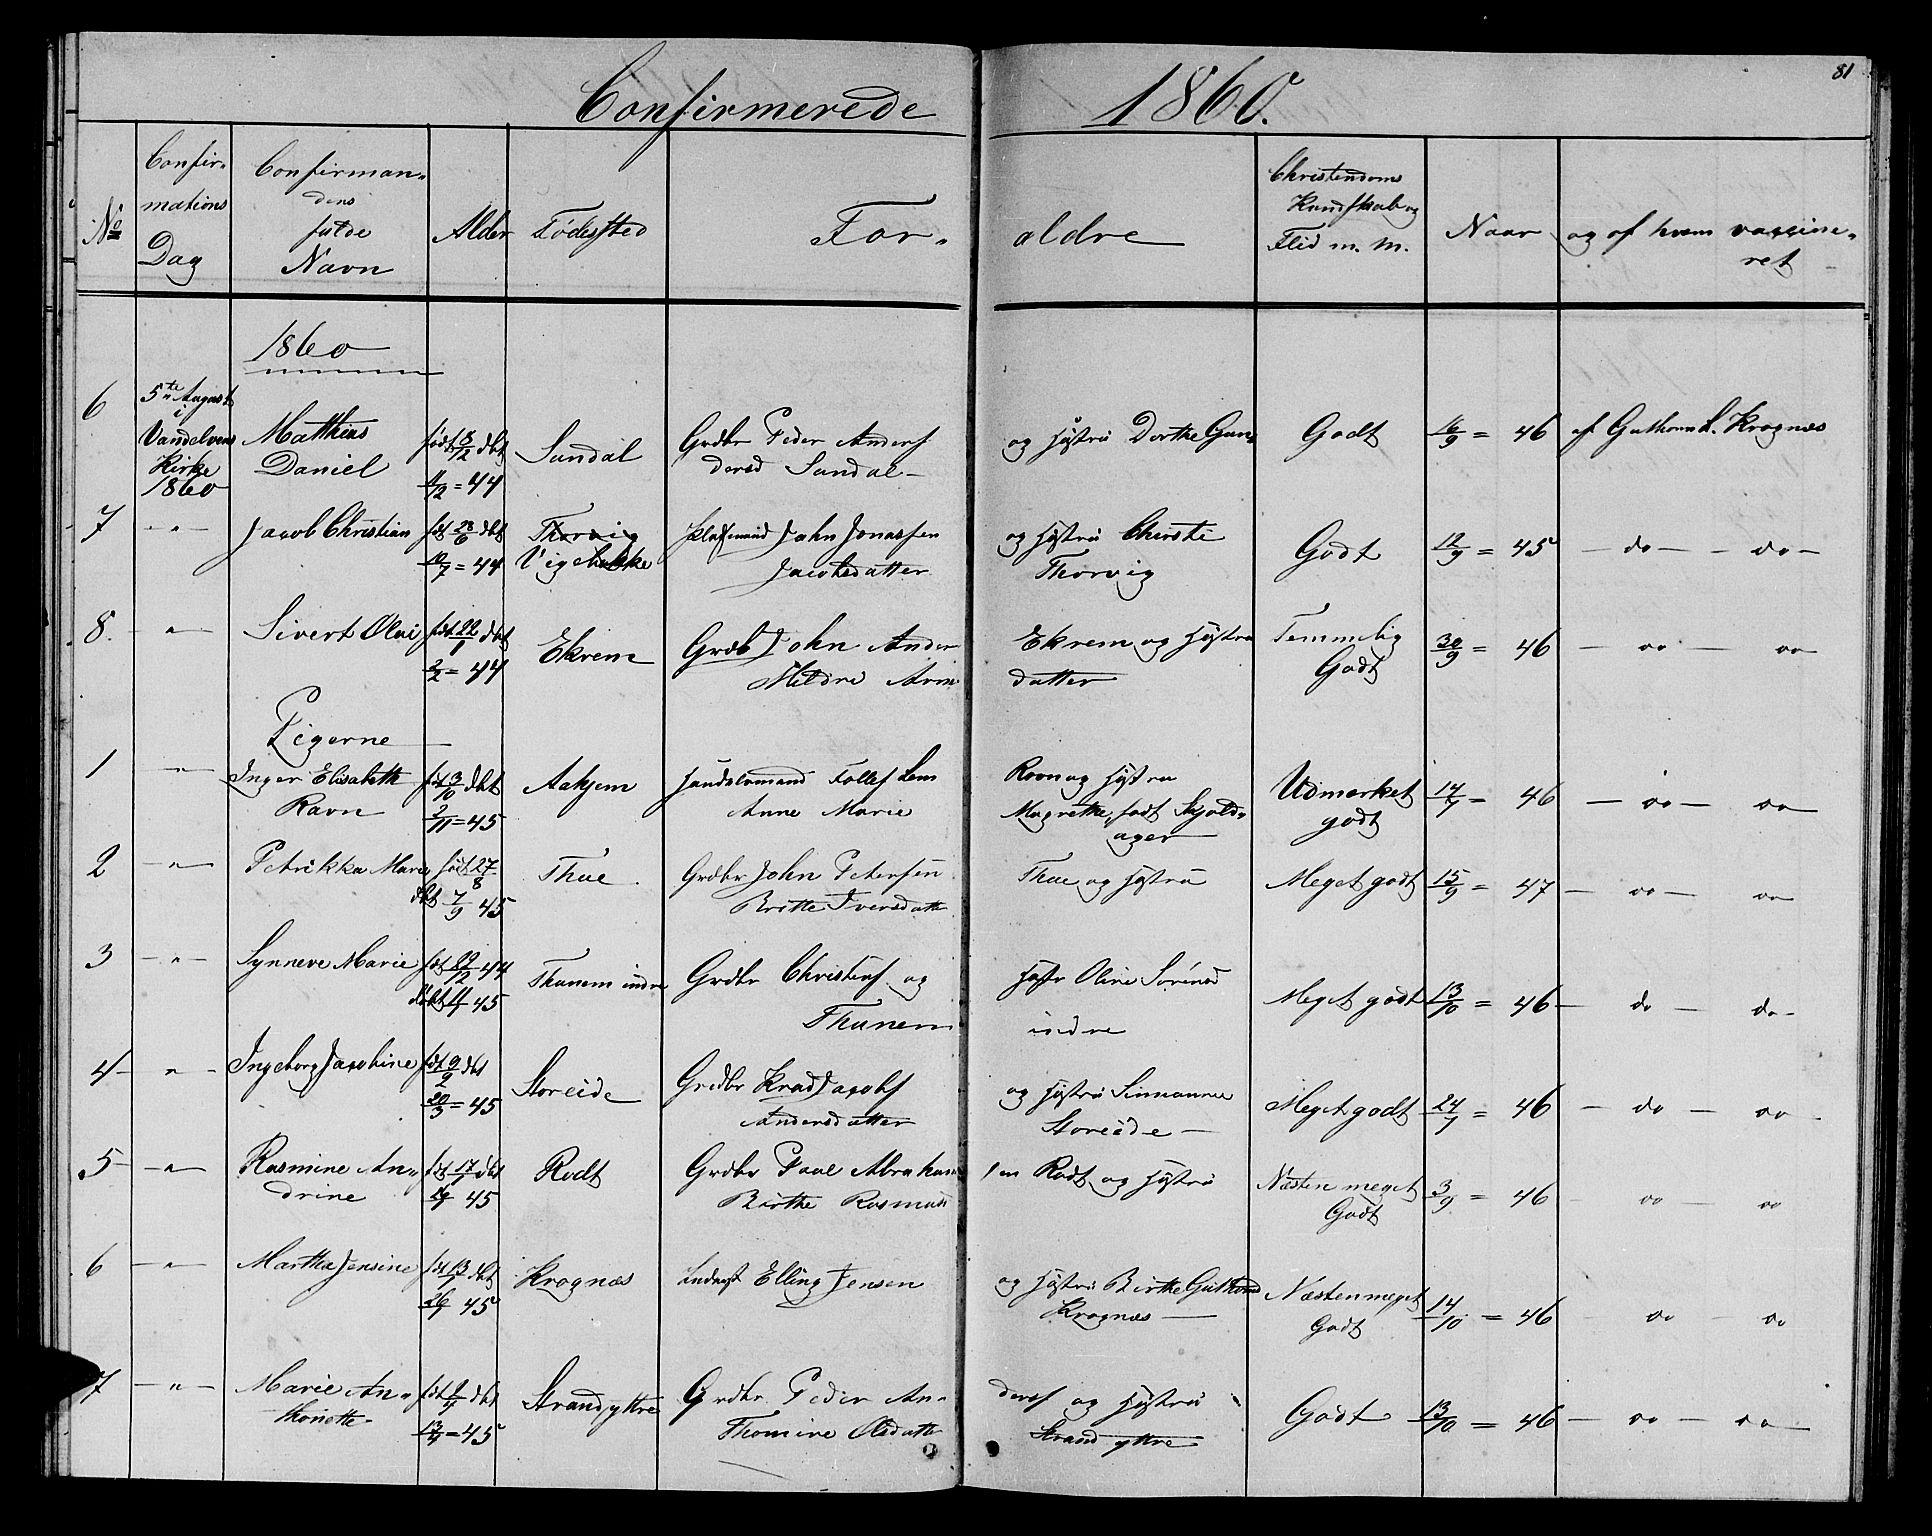 Confirmerede 1860.
81
No
Confir-
mations
Dag
Confirman-
dens
fulde
Navn
Alder
Fødested
For-
ældre
Christendoms
Kundskab og
Flid m. m.
Naar
og af hvem vaccine-
ret
1860
6
5te August
i
Vandelvens
Kirke
1860
Matthias
Daniel
født 8/2 dbt
11/2 = 44
Sundal
Grdbr Peder Anders
dersd Sundal
og Hustru Dorthe Gun-
Godt
16/9 = 46
af Guthorm L. Kragnæs
7
Jacob Christian
fdt 28/6 dbt
10/7 = 44
Thorvig
Vigebakke
Pladsmand John Jonassen
Jacobsdatter
og Hustru Christi
Thorvig
Godt
12/9 = 45
do do
8.
Sivert Olai
fdt 22/1 dbt
2/2 = 44
Ekrem
Grdb John Ander
Mildri Arn
Ekrem og Hustru
datter
Temmelig
Godt
30/9 = 46
do do
Pigerne
1
Inger Elisabeth
Ravn
fdt 3/10 dbt
2/11 = 45
Aahjem
Handelsmand Tollef Lem
Anne Marie
Ravn og Hustru
Magrethe, født Skjold-
ager
Udmærket
godt
14/7 = 46
do do
2
Petrikka Marie
født 27/8
dbt 7/9 45
Thue
Grdbr John Petersen
Britte Iversdatt
Thue og Hustru
Meget godt
15/9 = 47
do do
3
Synneve Marie
fdt 22/12 44
døbt 45
Thunem indre
Grdbr Christens og
Thunem
Hustr Oline Sørensd
indre
Meget godt
13/10 = 46
do do
4
Ingeborg Jacobine
fdt 9/2 dbt
20/3 = 45
Storeide
Grdbr Knud Jacobs
Andersdatter
og Hustru Sinnanna
Storeide
Meget godt
24/7 = 46
do do
5
Rasmine An-
drine
fdt 17 dbt
45
Rødt
Grdbr Paul Abraham
Birthe Rasmusd
sen Rødt og Hustru
Næsten meget
Godt
3/9 = 46
do do
6
Martha Jensine
fdt 13 dbt
26 45
Kragnæs
Indrst Elling Jensen
og Hustru Birthe Guthormd
Kragnæs
Næsten meget
Godt
14/10 = 46
do do
7
Marie An-
thonette
fdt dbt
13/4 = 45
Strand yttre
Grdbr Peder An-
Thomine Olsdatt
ders og Hustru
Strand yttre
Godt
13/10 = 46
do do